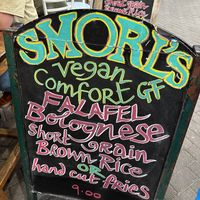 SMORL'S
vegan
comfort GF
FALAFEL
Bolognese
short grain
Brown Rice
OR
hand cut fries
9.00